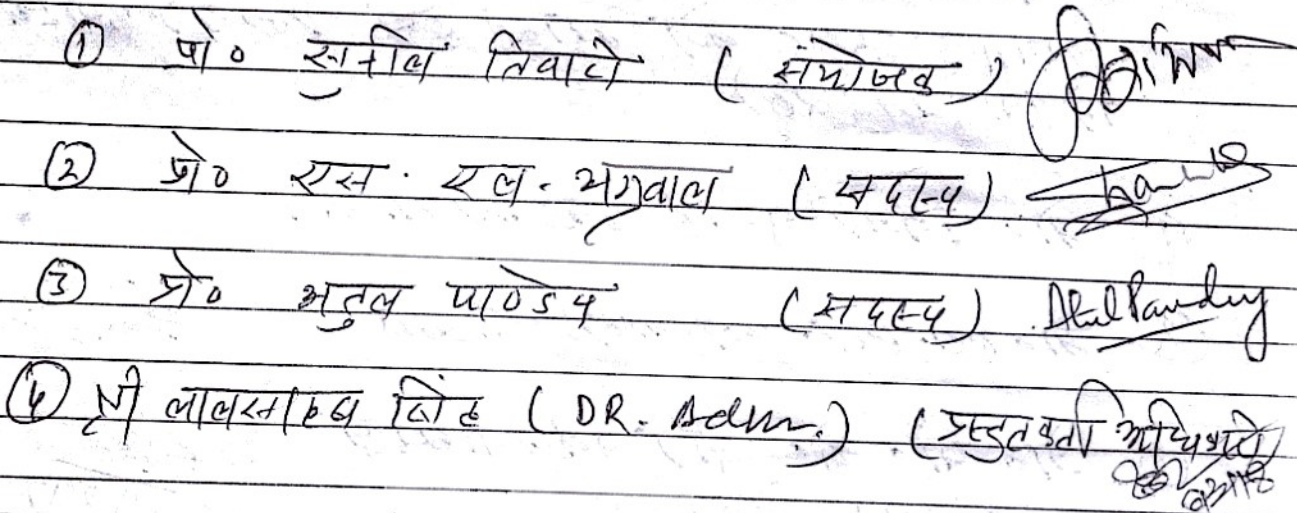 ① प्रो० सुनील तिवारी (संयोजक)
② प्रो० एस. एल. अग्रवाल (सदस्य)
③ प्रो० अतुल पाण्डेय (सदस्य) Atul Pandey
④ श्री लालसाहब सिंह (DR. Admn.) (प्रस्तुतकर्ता अधिकारी)